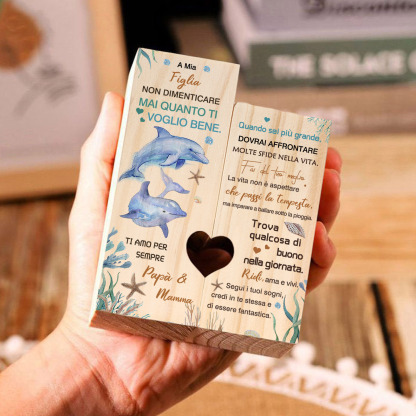 A Mia
Figlia
NON DIMENTICARE
MAI QUANTO TI
VOGLIO BENE.
TI AMO PER
SEMPRE
Papà &
Mamma
Quando sei più grande,
DOVRAI AFFRONTARE
MOLTE SFIDE NELLA VITA.
Fai del tuo meglio
La vita non è aspettare
che passi la tempesta,
ma imparare a ballare sotto la pioggia.
Trova
qualcosa di
buono
nella giornata.
Ridi, ama e vivi.
Segui i tuoi sogni,
credi in te stessa e
di essere fantastica.
THE SOLACE OF